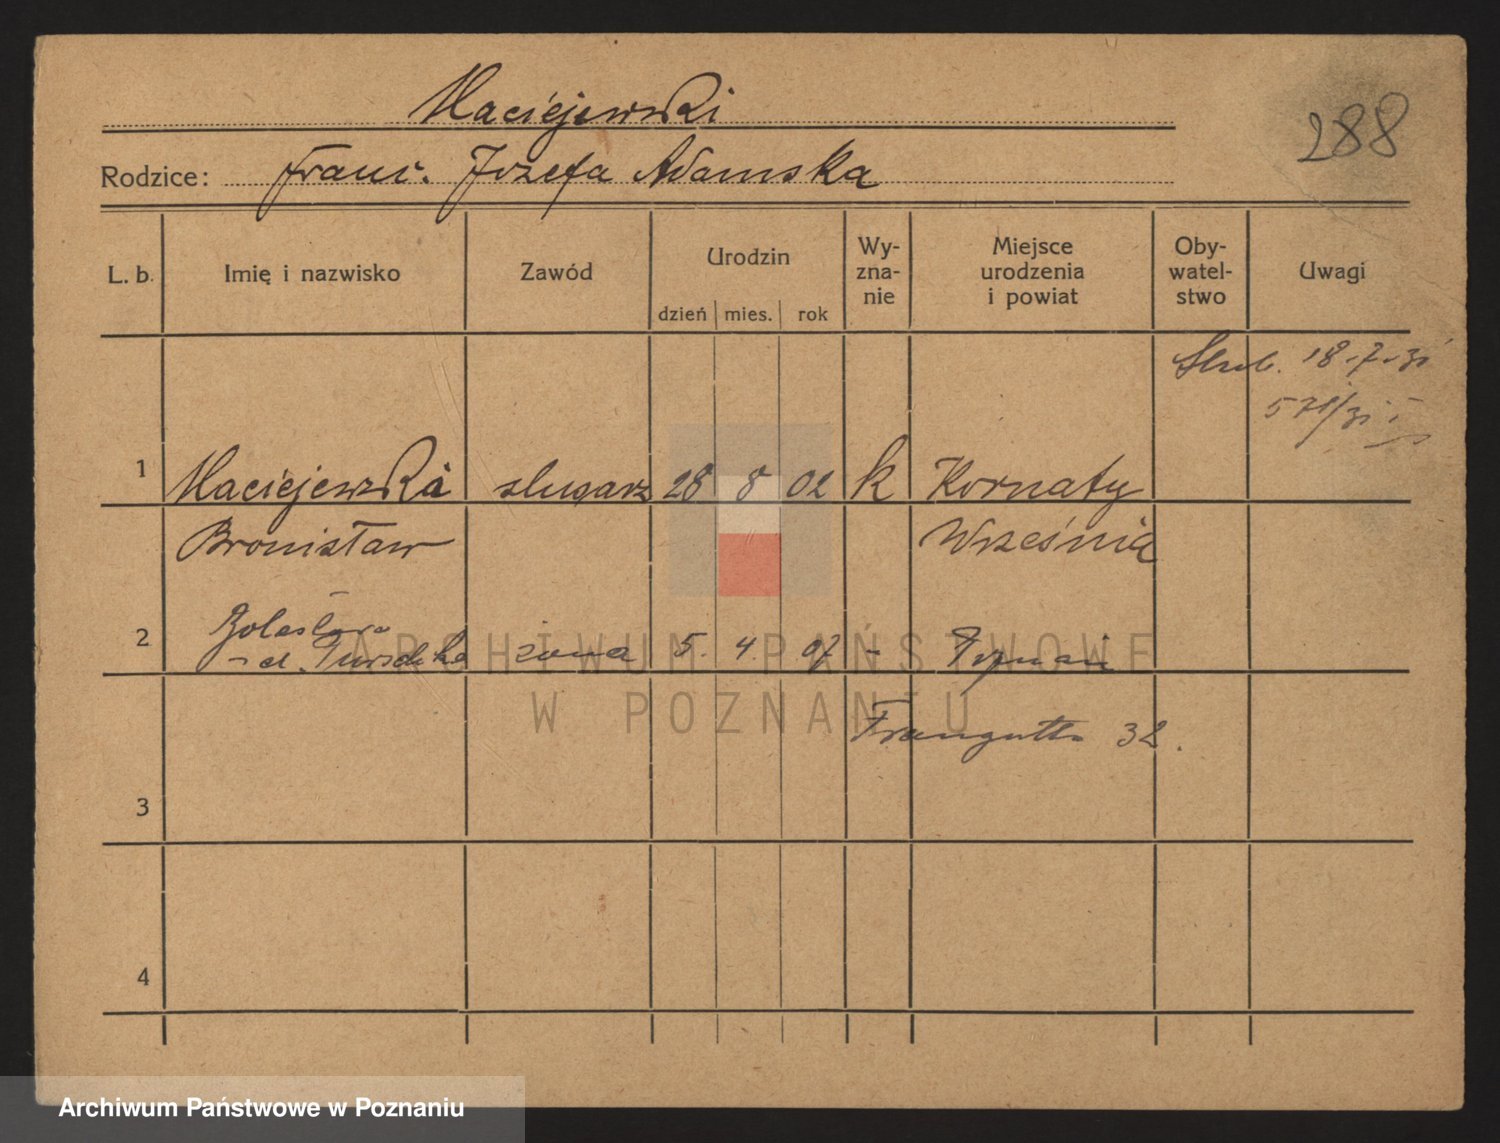 Maciejewski
288
Rodzice: Franc. Józefa Adamska
L. b. Imię i nazwisko Zawód Urodzin dzień mies. rok Wy-zna-nie Miejsce urodzenia i powiat Oby-watel-stwo Uwagi
Ślub. 18.7.31
571/31 I
1 Maciejewski ślusarz 28 8 02 k Kornaty
Bronisław Września
Bolesława
2 żona 5. 4. 07 - Poznań
32.
3
4
ARCHIWUM PAŃSTWOWE
W POZNANIU
Archiwum Państwowe w Poznaniu